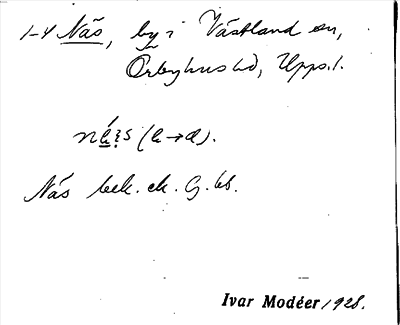 1-4 Näs, by i Västland sn,
Örbyhus hd, Upps. l.
Näs bek. ek. G. bs.
Ivar Modéer 1928.